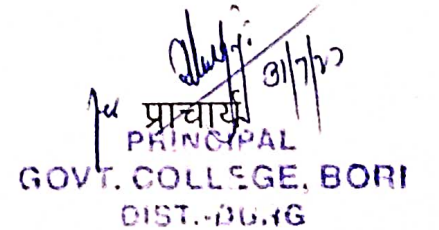 31/7/20
प्राचार्य
PRINCIPAL
GOVT. COLLEGE, BORI
DIST.-DURG